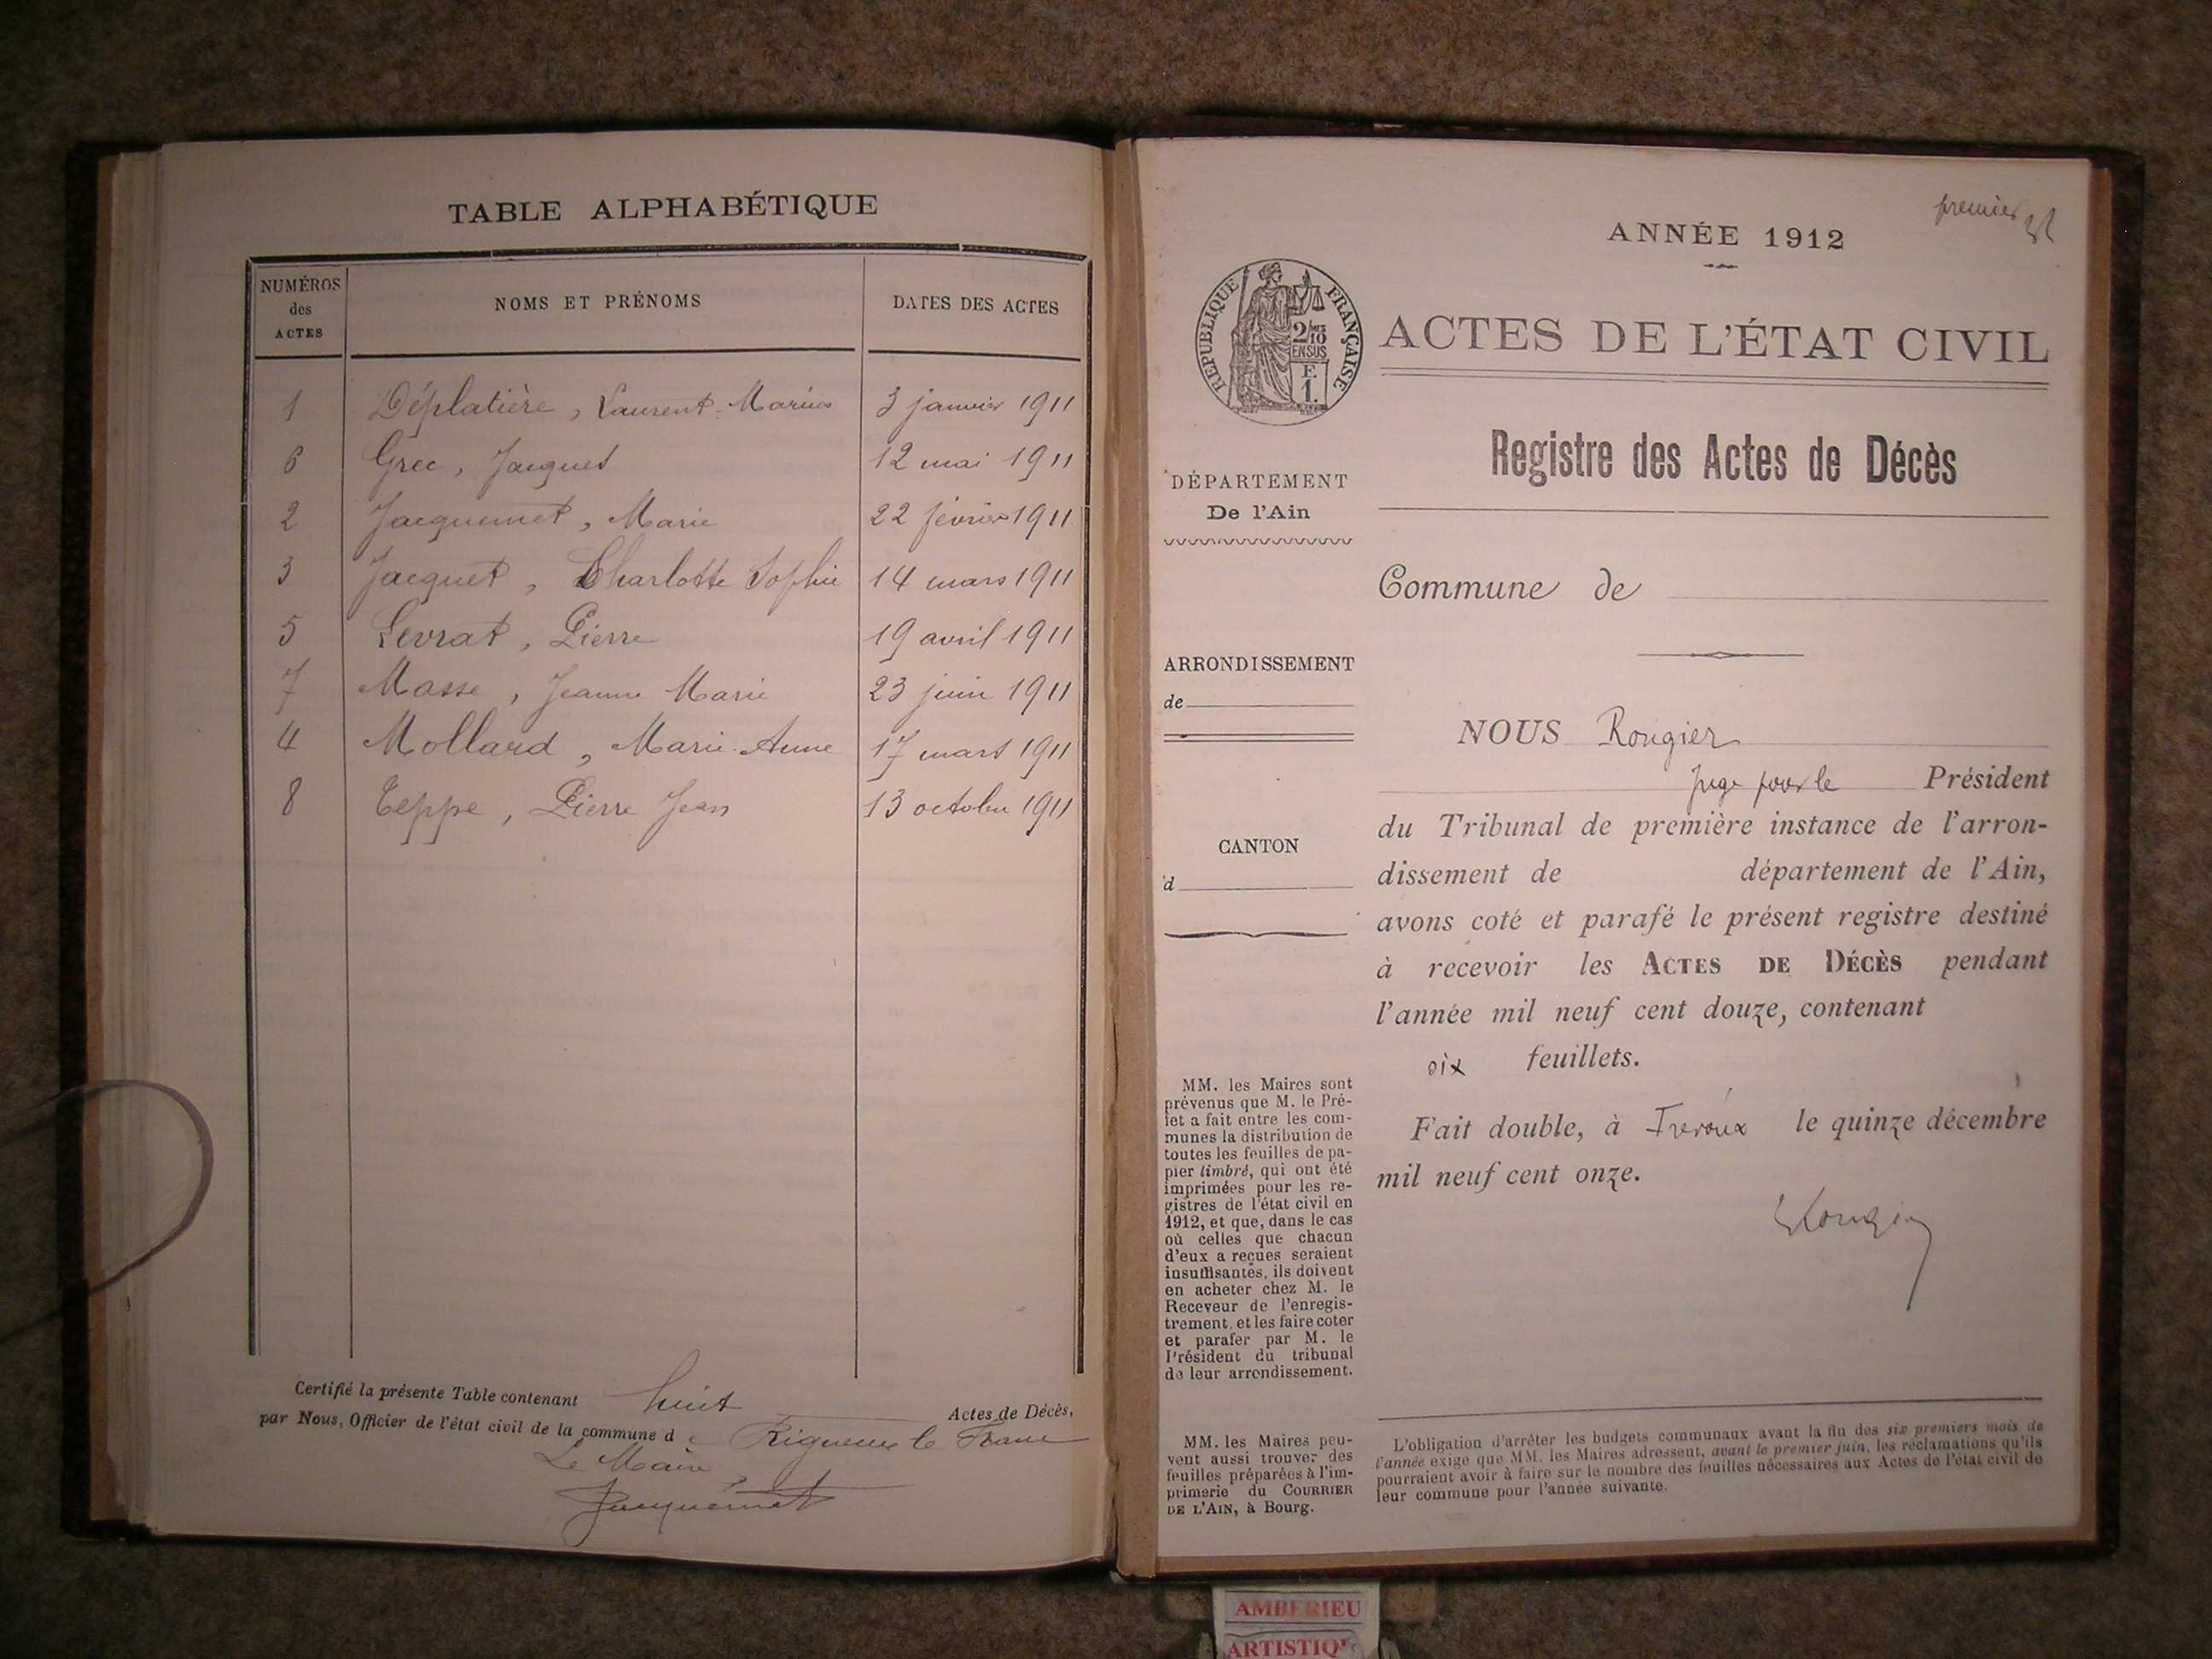 TABLE ALPHABÉTIQUE
NUMÉROS
des
ACTES
NOMS ET PRÉNOMS
DATES DES ACTES
1 Déplatière, Laurent-Marius 3 janvier 1911
6 Grec, Jacques 12 mai 1911
2 Jacquemet, Marie 22 février 1911
3 Jacquet, Charlotte Sophie 14 mars 1911
5 Levrat, Pierre 19 avril 1911
7 Masse, Jeanne Marie 23 juin 1911
4 Mollard, Marie-Anne 17 mars 1911
8 Teppe, Pierre Jean 13 octobre 1911
Certifié la présente Table contenant huit Actes de Décès,
par Nous, Officier de l'état civil de la commune de Rigneux le Franc
Le Maire
Jacquemet
premier
ANNÉE 1912
RÉPUBLIQUE FRANÇAISE
2/10
EN SUS
F.
1.
ACTES DE L'ÉTAT CIVIL
Registre des Actes de Décès
DÉPARTEMENT
De l'Ain
Commune de
ARRONDISSEMENT
de
CANTON
d
NOUS Rougier
Juge pour le Président
du Tribunal de première instance de l'arron-
dissement de département de l'Ain,
avons coté et parafé le présent registre destiné
à recevoir les ACTES DE DÉCÈS pendant
l'année mil neuf cent douze, contenant
six feuillets.
Fait double, à Trévoux le quinze décembre
mil neuf cent onze.
Rougier
MM. les Maires sont
prévenus que M. le Pré-
fet a fait entre les com-
munes la distribution de
toutes les feuilles de pa-
pier timbré, qui ont été
imprimées pour les re-
gistres de l'état civil en
1912, et que, dans le cas
où celles que chacun
d'eux a reçues seraient
insuffisantes, ils doivent
en acheter chez M. le
Receveur de l'enregis-
trement. et les faire coter
et parafer par M. le
Président du tribunal
de leur arrondissement.
MM. les Maires peu-
vent aussi trouver des
feuilles préparées à l'im-
primerie du COURRIER
DE L'AIN, à Bourg.
L'obligation d'arrêter les budgets communaux avant la fin des six premiers mois de
l'année exige que MM. les Maires adressent, avant le premier juin, les réclamations qu'ils
pourraient avoir à faire sur le nombre des feuilles nécessaires aux Actes de l'état civil de
leur commune pour l'année suivante.
AMBERIEU
ARTISTIQ